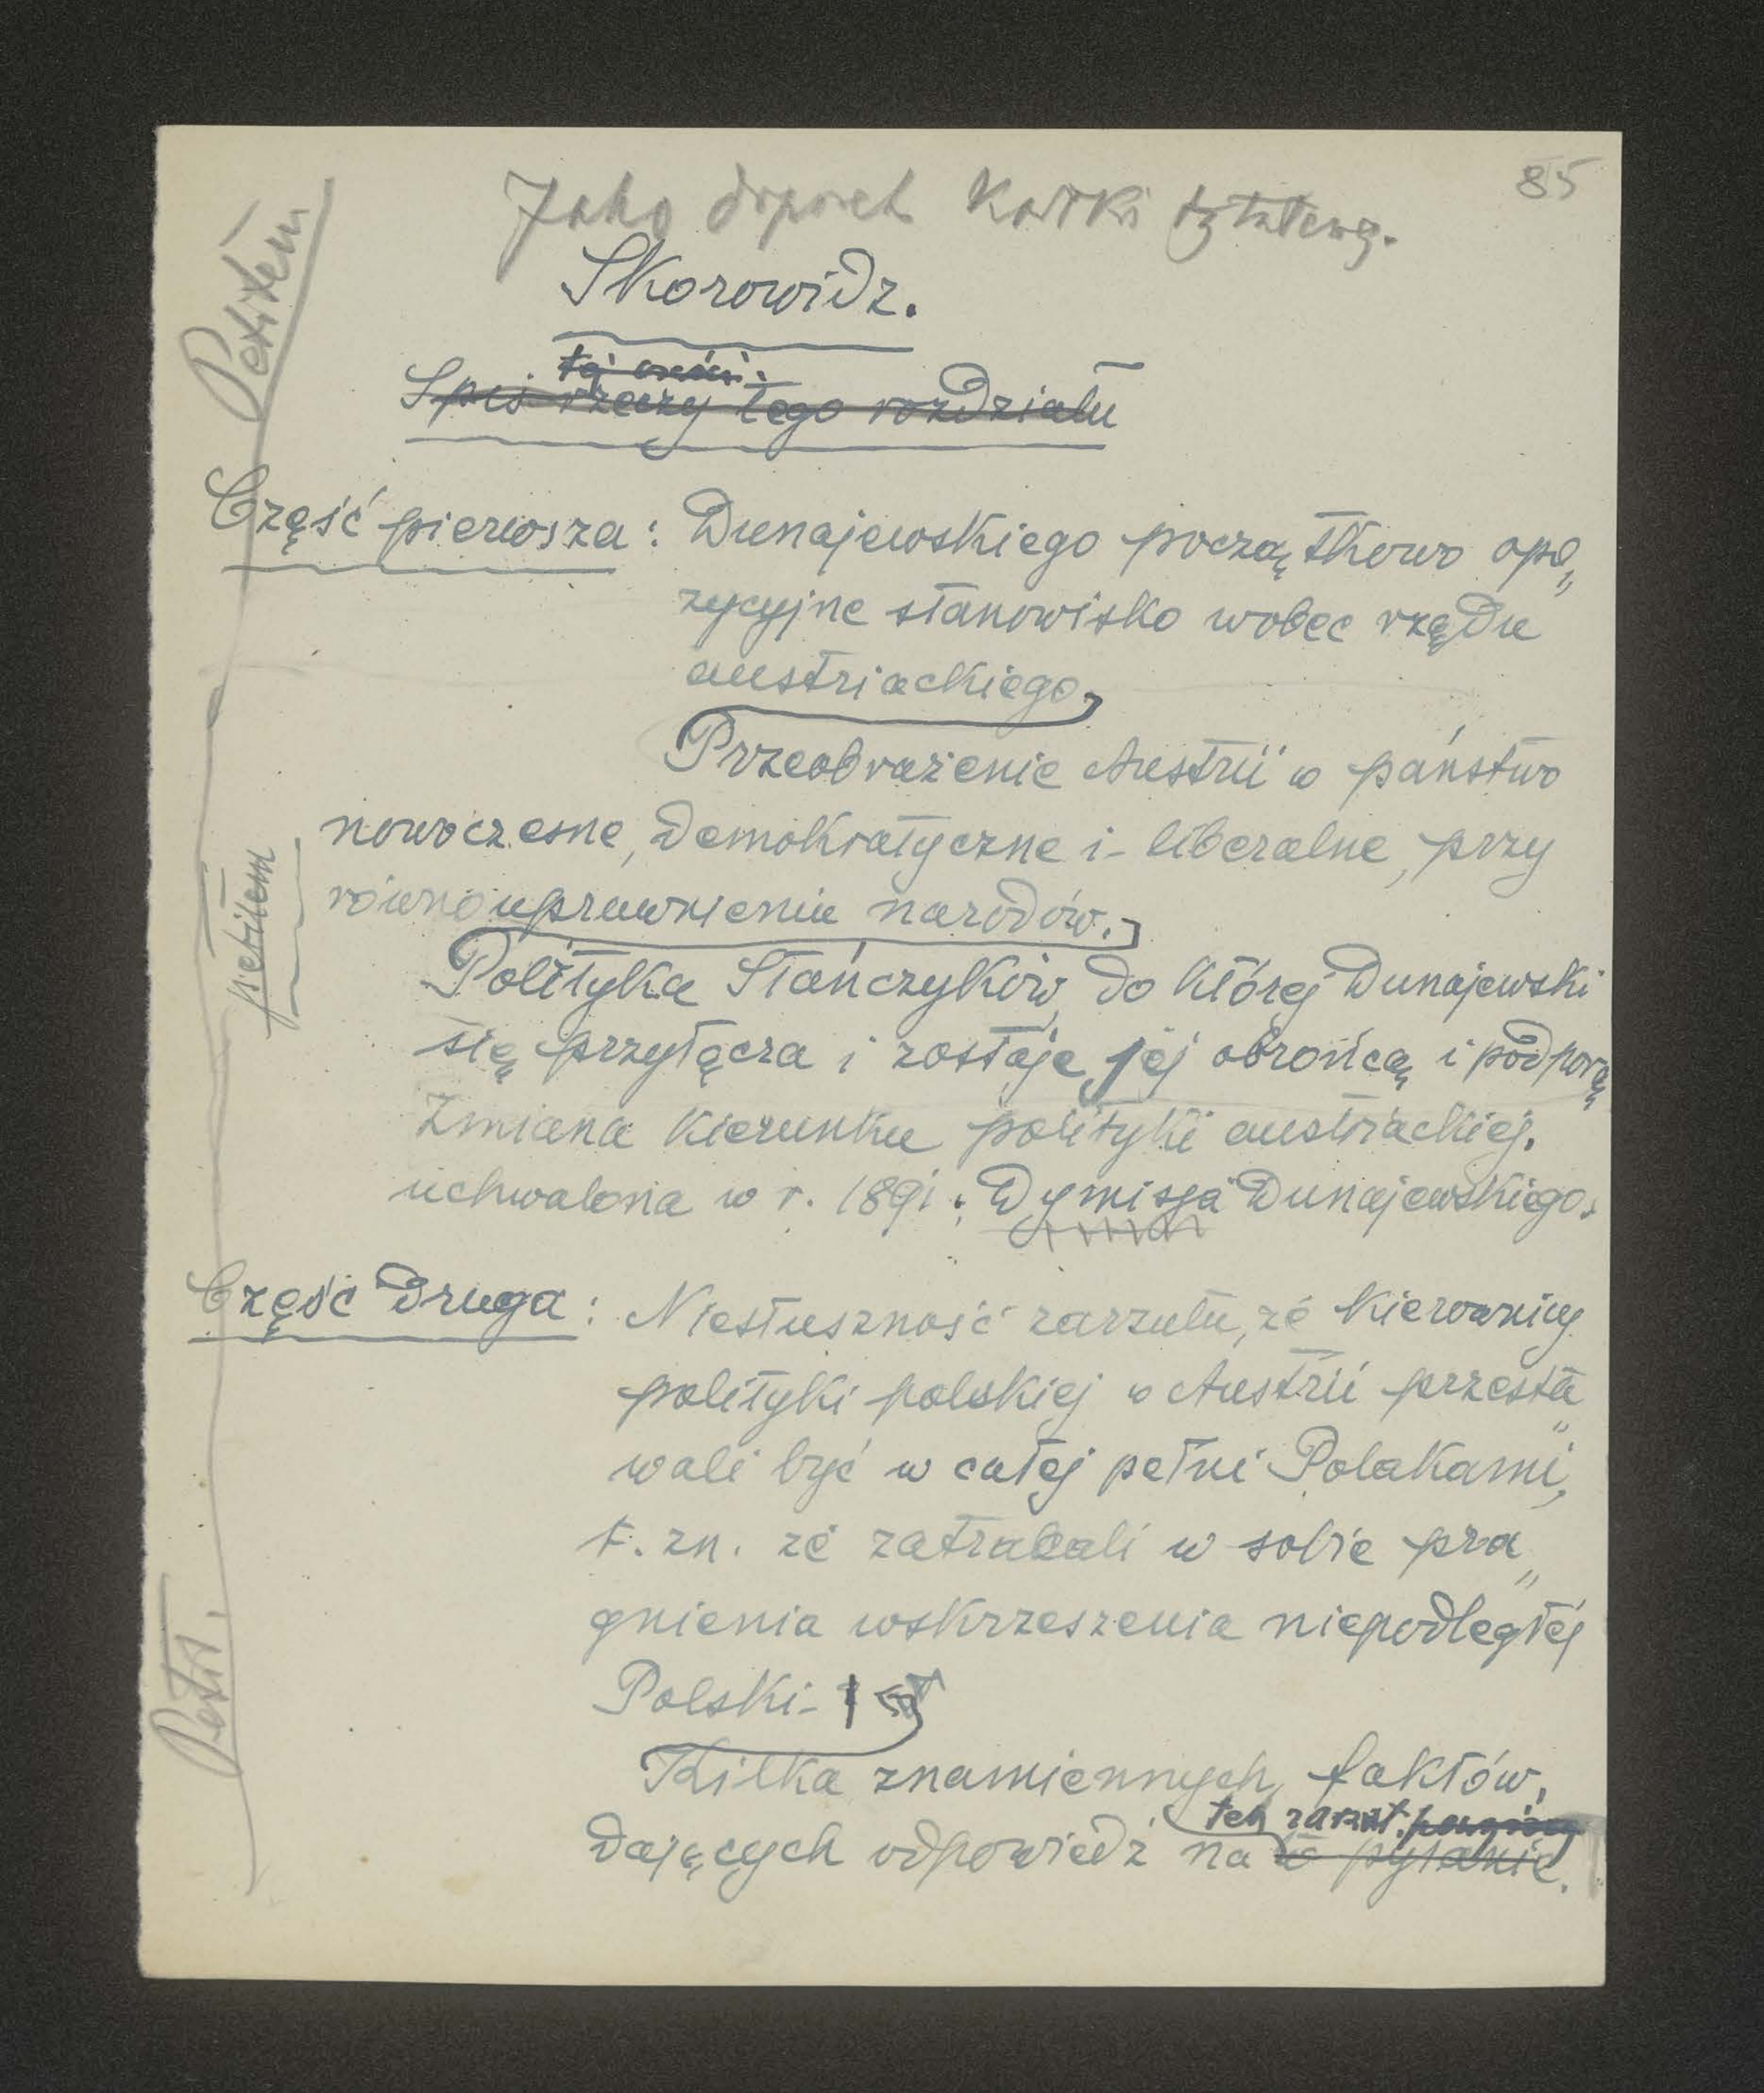 85
Jako kartki tytułowej.
Skorowidz.
tej części.
Spis rzeczy tego rozdziału
Petitem
Część pierwsza: Dunajewskiego początkowo opo„
zycyjne stanowisko wobec rządu
austriackiego,
Przeobrażenie Austrii w państwo
nowoczesne, demokratyczne i liberalne, przy
równouprawnieniu narodów.
petitem
Polityka Stańczyków, do której Dunajewski
się przyłącza i zostaje jej obrońcą i podporą
Zmiana kierunku polityki austriackiej.
uchwalona w r. 1891; Dymisja Dunajewskiego.
Część druga: Niesłuszność zarzutu, że kierownicy
polityki polskiej w Austrii przesta„
wali być w całej pełni Polakami,
t. zn. że zatracali w sobie pra„
gnienia wskrzeszenia niepodległej
Polski.
Petit.
Kilka znamiennych faktów,
ten zarzut.
dających odpowiedź na to pytanie.